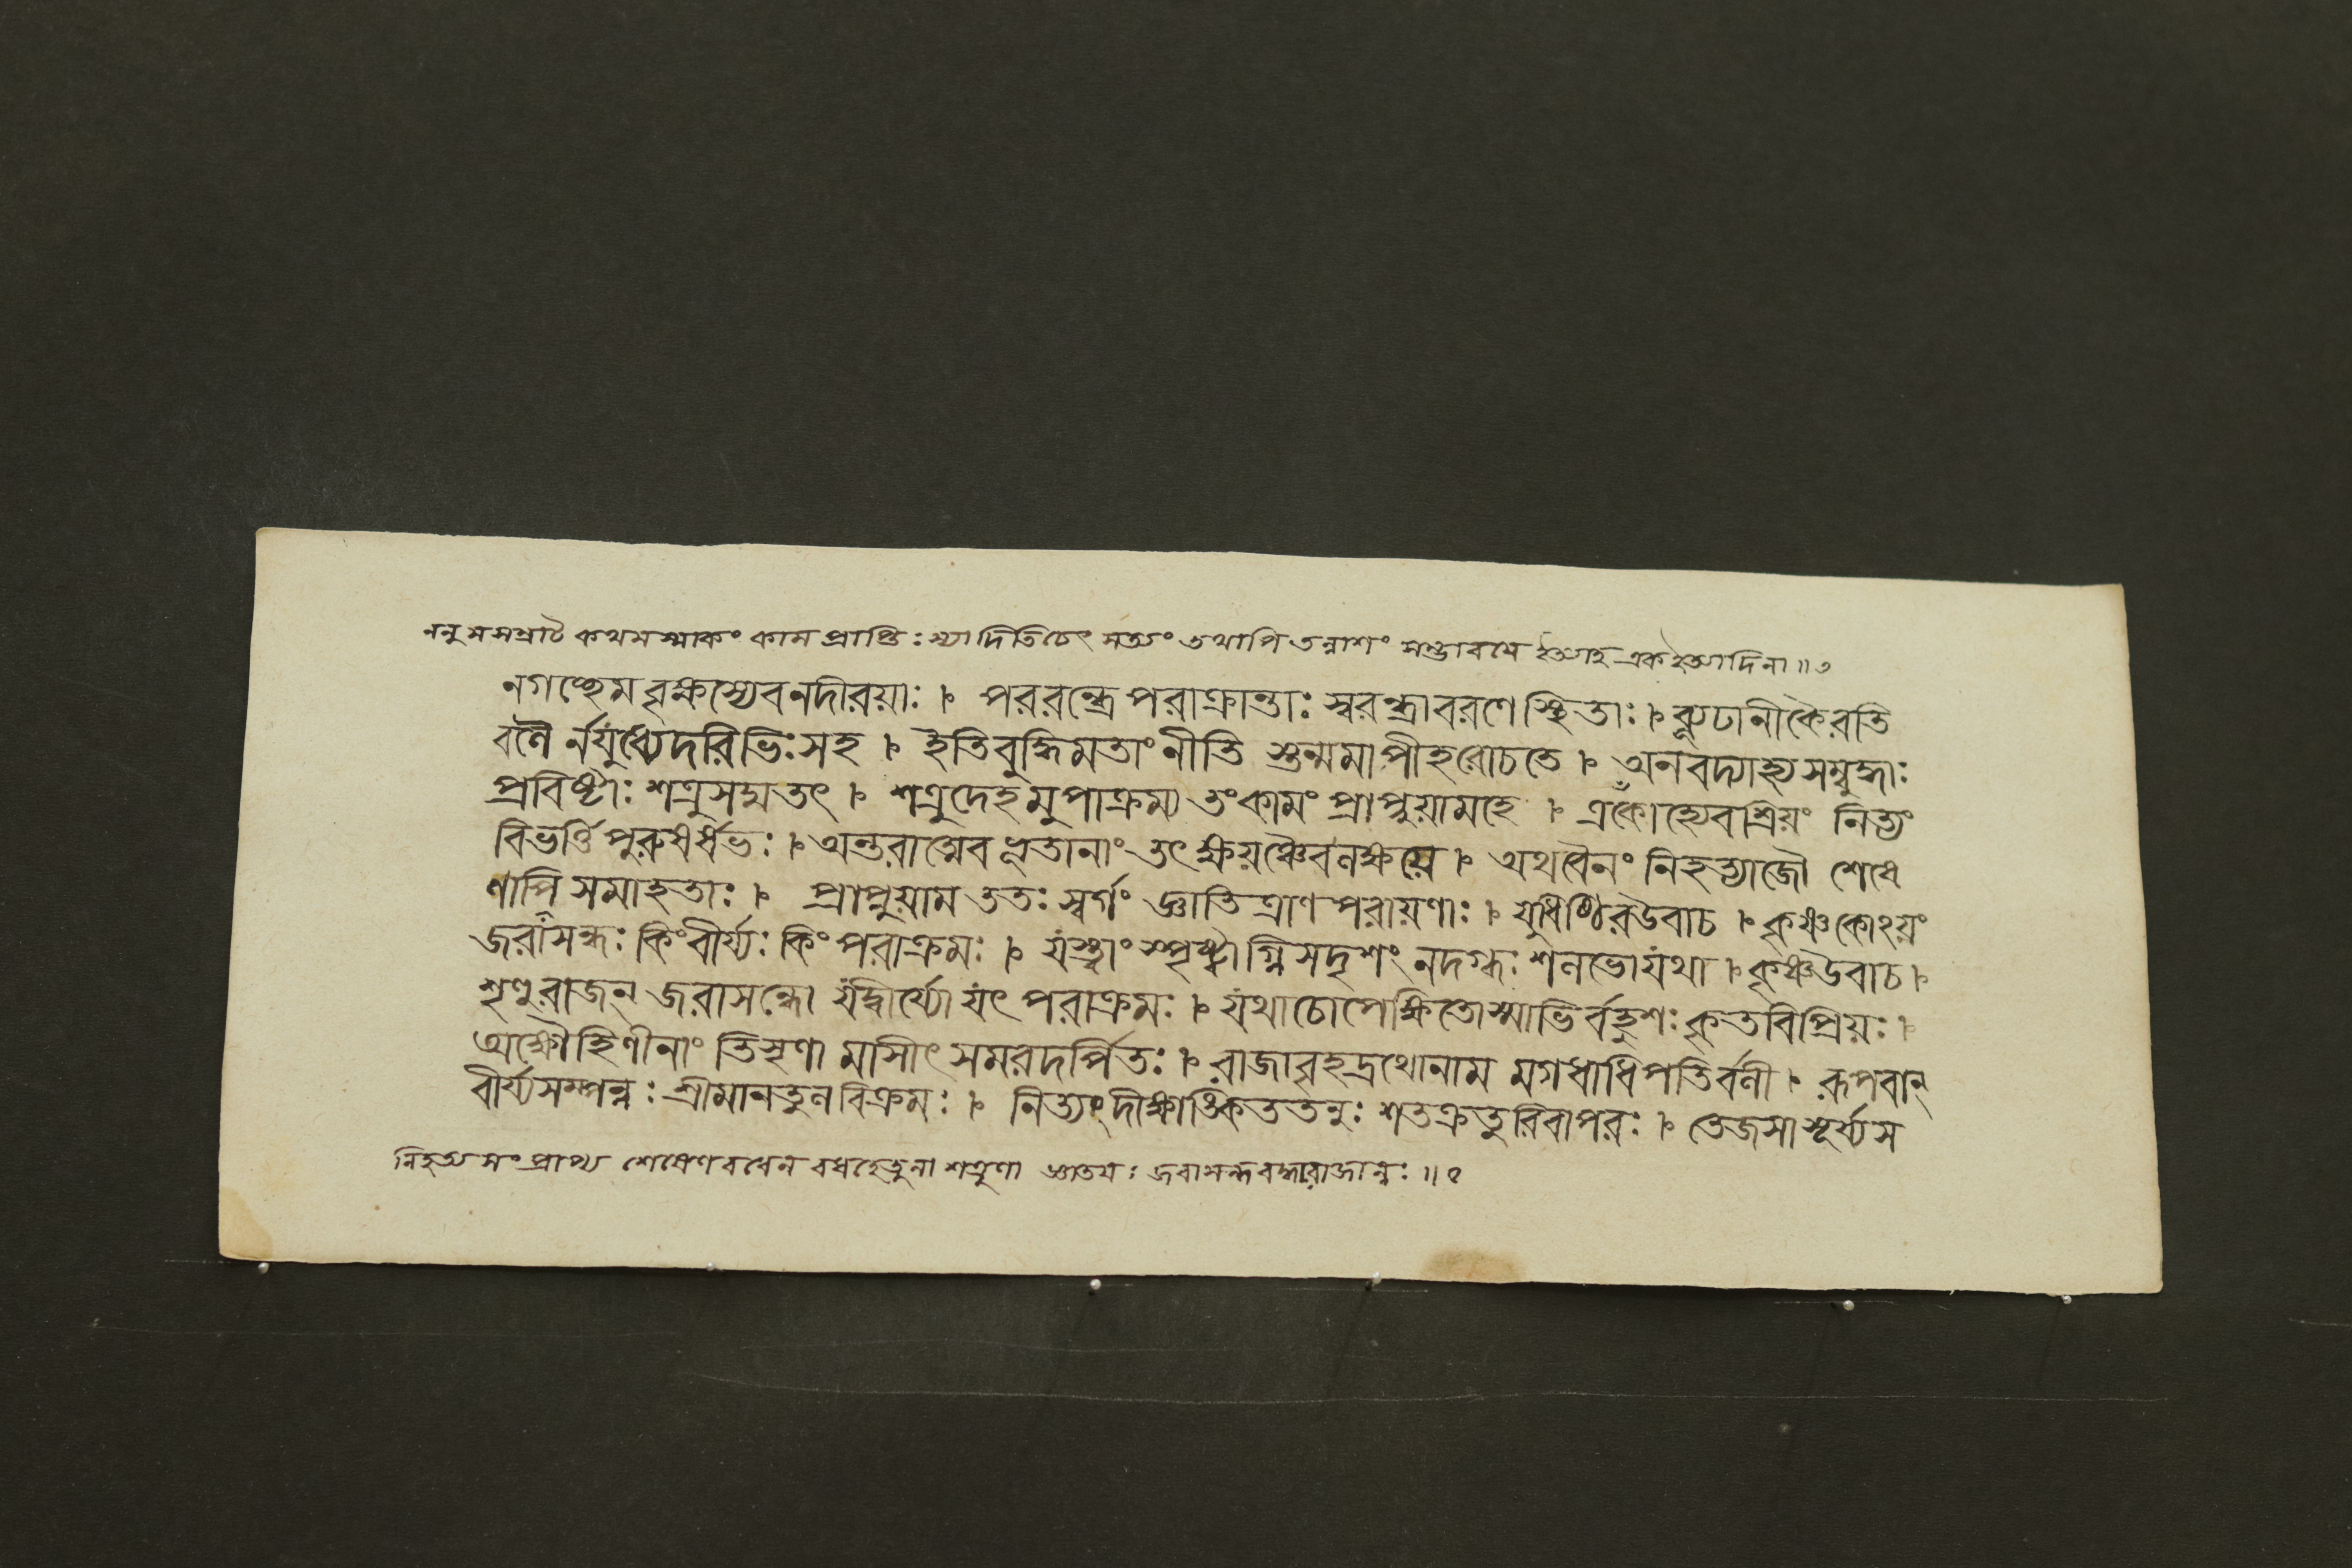 ননু স সম্রাট কথমস্মাকং কামপ্রাপ্তিঃ স্যাদিতিচেৎ সত্যং তথাপি তন্নাশং সম্ভাবযে ইত্যাহ এক ইত্যাদিনা॥৩
নগচ্ছেমবৃক্ষস্যেবনদীরয়াঃ । পররন্ধ্রে পরাক্রান্তাঃ স্বরন্ধ্রাবরণে স্থিতাঃ । ব্যূঢানীকৈরতি
বলৈ র্নযুধ্যেদরিভিঃ সহ । ইতিবুদ্ধিমতাং নীতি স্তন্মমাপীহরোচতে । অনবদ্যাহ্যসম্বুদ্ধাঃ
প্রবিষ্টাঃ শত্রুসদ্মতৎ । শত্রুদেহমুপাক্রম্য তংকামং প্রাপ্নুয়ামহে । একোহ্যেবশ্রিয়ং নিত্যং
বিভর্ত্তিপুরুষর্ষভঃ । অন্তরাত্মেবভূতানাং তৎক্ষয়ঞ্চৈবলক্ষয়ে । অথবৈনং নিহত্যাজৌ শেষে
ণাপি সমাহতাঃ । প্রাপ্নুয়াম ততঃ স্বর্গং জ্ঞাতিত্রাণপরায়ণাঃ । যুধিষ্ঠিরউবাচ । কৃষ্ণকোঽয়ং
জরাসন্ধঃ কিংবীর্য্যঃ কিং পরাক্রমঃ । যস্ত্বাং স্পৃষ্ট্বাগ্নিসদৃশং নদগ্ধঃ শলভোযথা । কৃষ্ণউবাচ ।
শৃণুরাজন্ জরাসন্ধো যদ্বীর্য্যো যৎ পরাক্রমঃ । যথাচোপেক্ষিতোস্মাভির্বহুশঃ কৃতবিপ্রিয়ঃ ।
অক্ষৌহিণীনাং তিসৃণা মাসীৎ সমরদর্পিতঃ । রাজাবৃহদ্রথোনাম মগধাধিপতির্বলী । রূপবান্
বীর্য্যসম্পন্নঃ শ্রীমানতুলবিক্রমঃ । নিত্যংদীক্ষাঙ্কিততনুঃ শতক্রতুরিবাপরঃ । তেজসাসূর্য্যস
নিহত্য সংপ্রাপ্য শেষেণ বধেন বধহেতুনা শত্রুণা জ্ঞাতযঃ জরাসন্ধবদ্ধারাজানঃ॥১